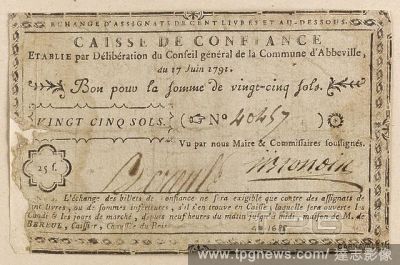 ECHANGE D'ASSIGNATS DE CENT LIVRES ET AU-DESSOUS.
CAISSE DE CONFIANCE
ETABLIE par Délibération du Conseil général de la Commune d'Abbeville,
du 17 Juin 1791.
Bon pour la somme de vingt-cinq sols.
VINGT CINQ SOLS. ( N° 40457 )
Vu par nous Maire & Commissaires soussignés.
25 s.
L'échange des billets de confiance ne sera exigible que contre des assignats de
cent livres, ou de sommes inférieures, s'il s'en trouve en Caisse, laquelle sera ouverte les
Lundi & les jours de marché, depuis neuf heures du matin jusqu'à midi, maison de M. de
BEREUL, Caissier, Chaussée du Bois.
www.tpgnews.com/ 達志影像